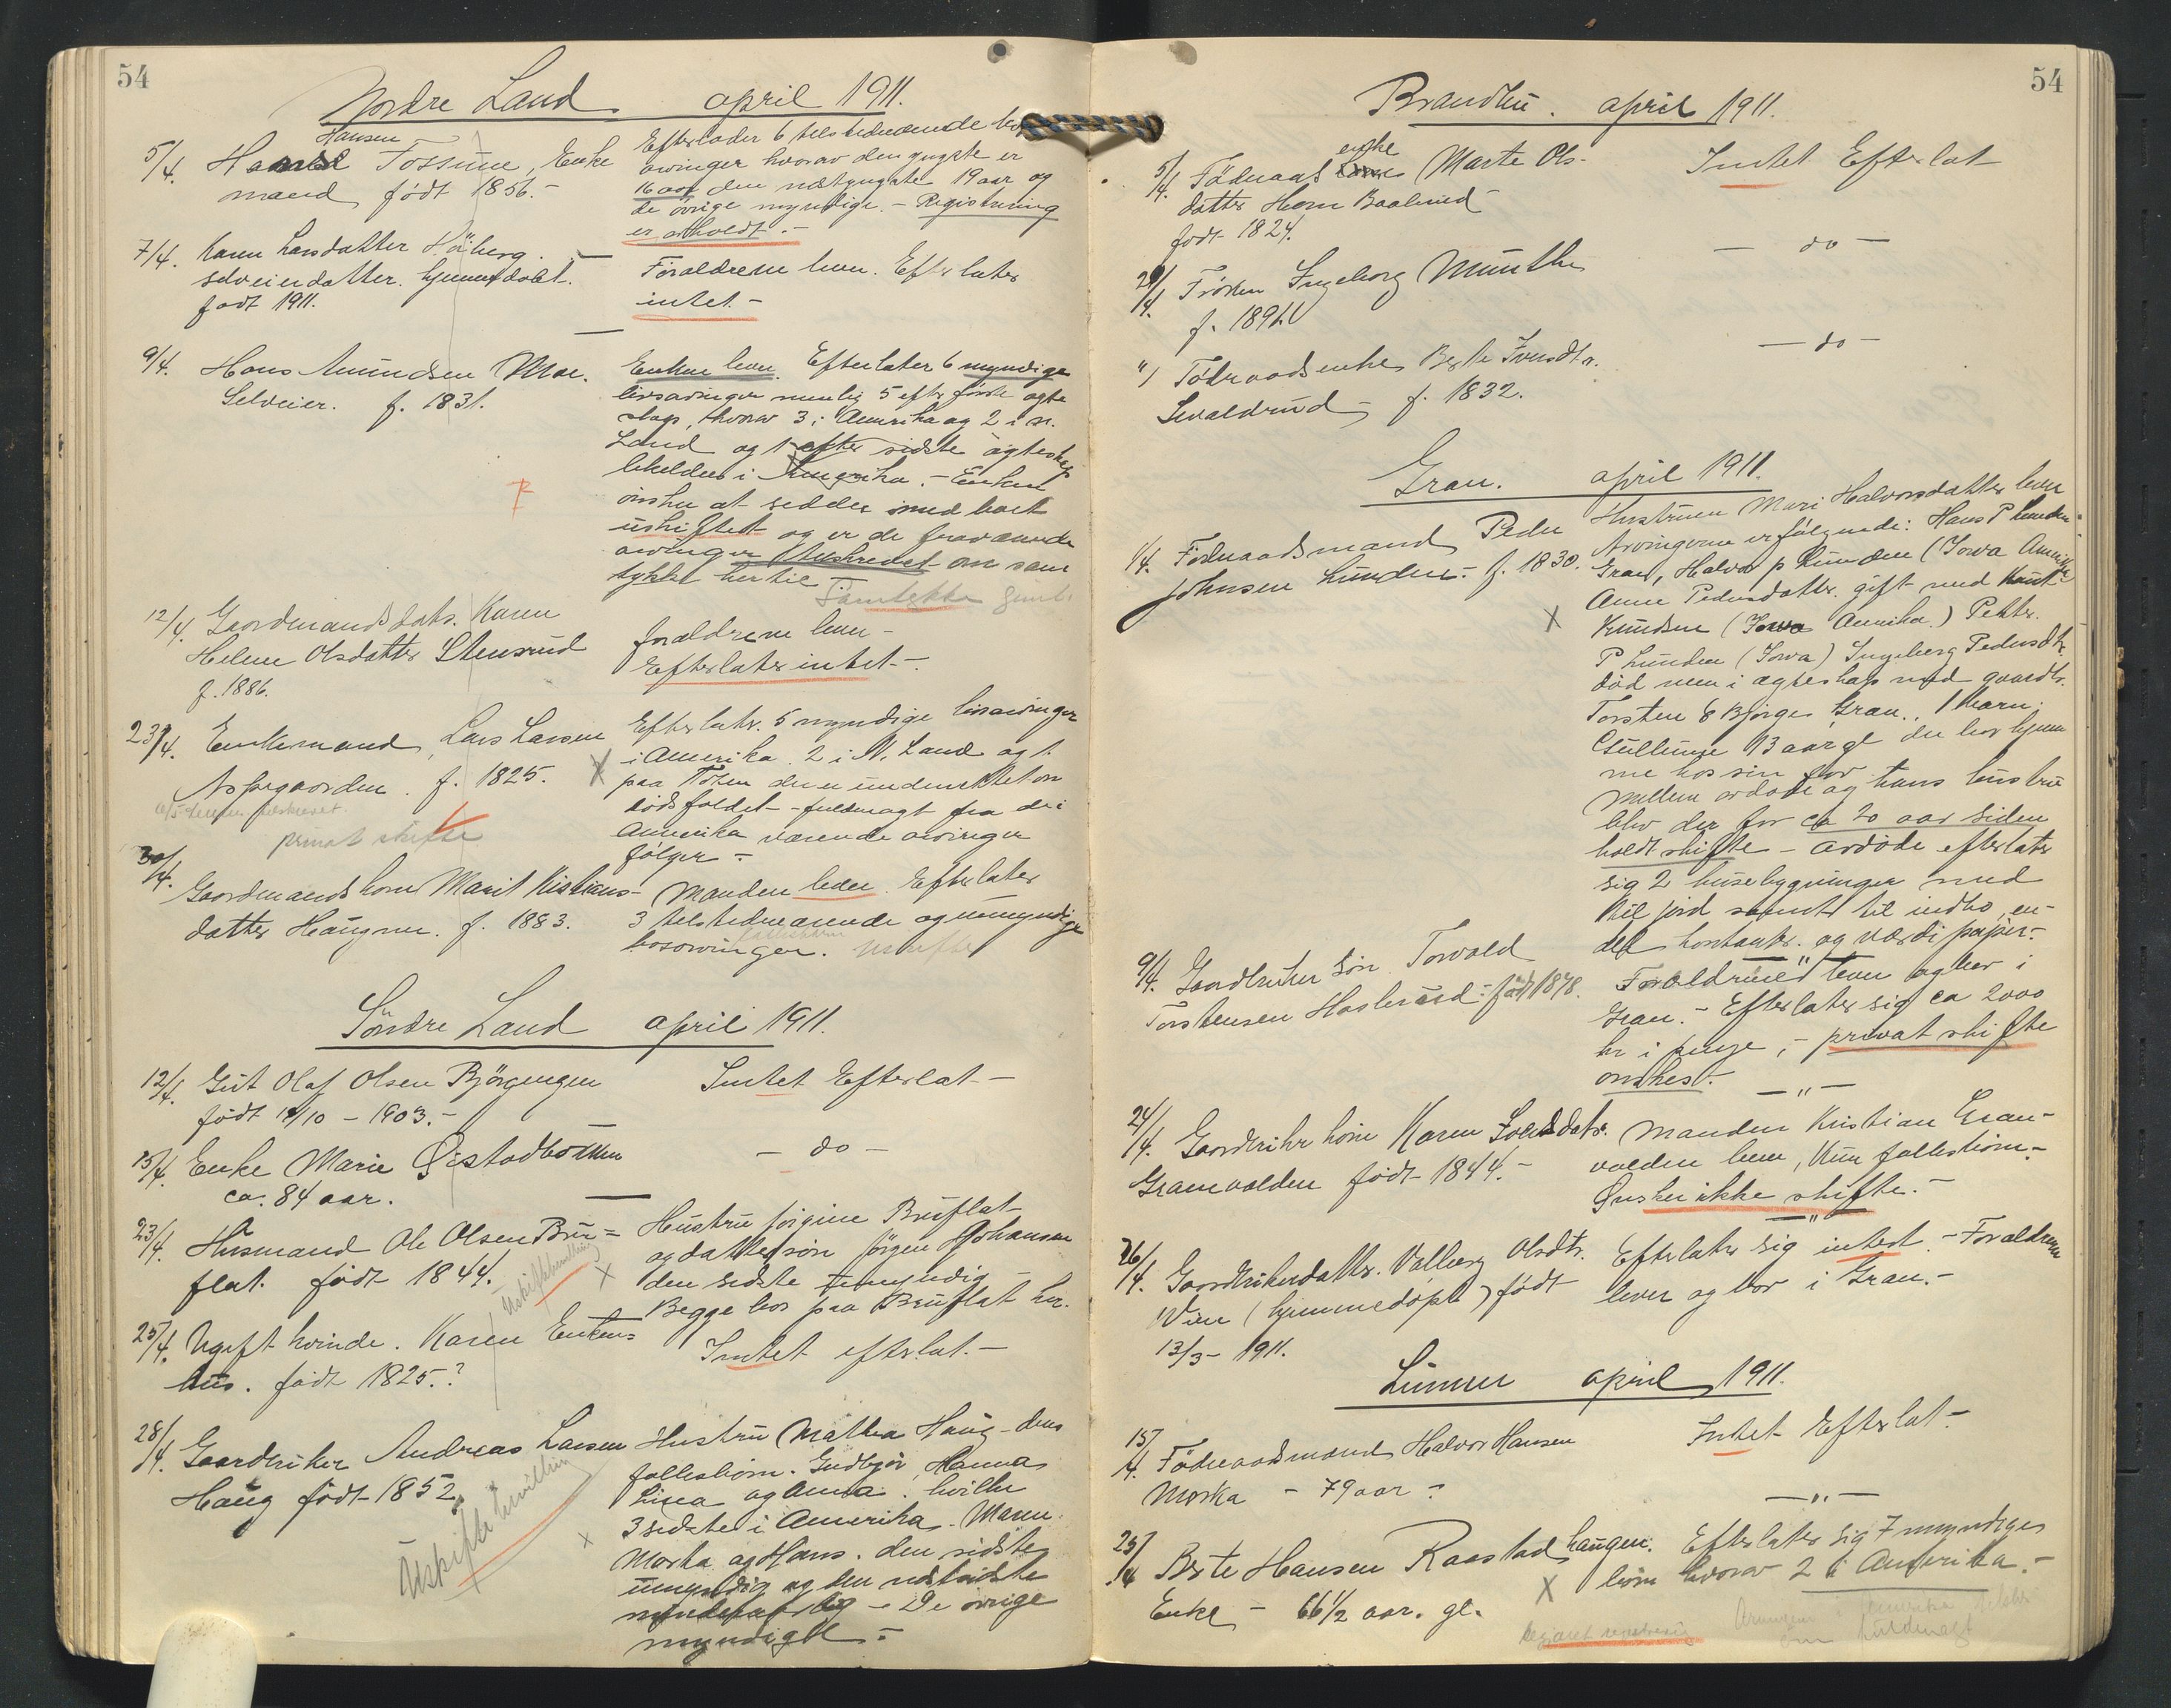 54
Nordre Land april 1911.
5/4. Hansen Tossune, Enke
mand født 1856.-
Efterlader 6 tilstedeværende
arvinger hvorav den yngste er
16 aar den næstyngste 19 aar og
de övrige myndige. - Registrering
er avholdt.-
7/4. Karen Larsdatter Höiberg.
selveierdatter. hjemmedöbt.
født 1911.
Foraldrene lever. Efterlater
intet.-
9/4. Hans Amundsen Moe.
Selveier. f. 1831.
Enken lever. Efterlater 6 myndige
livsarvinger nemlig 5 efter förste ægte
skap, hvorav 3 i Amerika og 2 i N.
Land og 1 efter sidste ægteskap
likeledes i Amerika. - Enken
önsker at sidde med boet
uskiftet og er de fraværende
arvinger tilskrevet om sam
tykke hertil Samtykke
12/4. Gaardmandsdatr. Karen
Helene Olsdatter Stensrud
f. 1886.
foraldrene lever -
Efterlater intet.-
23/4. Enkemand, Lars Larsen
Aspegaarden. f. 1825.
privat skifte
Efterlatr. 5 myndige livsarvinger
i Amerika. 2 i N. Land og 1
paa Toten der er underrettet om
dödsfaldet - fuldmagt fra de i
Amerika værende arvinger
fölger -
30/4. Gaardmandskone Marit Kristians-
datter Haugner. f. 1883.
Manden lever. Efterlater
3 tilstedeværende og umyndige
livsarvinger. Uskiftet
Söndre Land april 1911.
12/4. Gut Olaf Olsen Björgengen
født 14/10 - 1903.-
Intet Efterlat -
15/4. Enke Marie Øistadbakken
ca. 84 aar.
- do -
23/4. Husmand Ole Olsen Bru=
flat. født 1844.
Hustru Jörgine Bruflat
og dattersön Jörgen Johansen
den sidste umyndig -
Begge bor paa Bruflat her.
25/4. Ugift kvinde. Karen Enken=
hus. født 1825.?
Intet efterlat.-
28/4. Gaardbruker Andreas Larsen
Haug født 1852
Uskiftebevilling
Hustru Mathea Haug - deres
fellesbörn. Gudbjör, Hanna
Lina og Anna. hvilke
3 sidste i Amerika - Maren.
Marta og Hans. den sidste
umyndig og den næstsidste
mindreaarig - De övrige
myndige -
54
Brandbu. april 1911.
5/4. Föderaads enke Marte Ols-
datter Horn Baalerud
født 1824.
Intet Efterlat
29/4. Fröken Ingeborg Munthe
f. 1894
- do -
"/ Föderaadsenke Berte Iversdtr.
Sevaldrud - f. 1832.
- do -
Gran. april 1911.
1/4. Föderaadsmand Peder
Johnsen Lunden - f. 1830.
Hustruen Mari Halvorsdatter lever
Arvingerne er fölgende: Hans P Lunden
Gran, Halvor P Lunden (Iowa Amerika
Anne Pedersdatter. gift med Knut
Knudsen (Iowa Amerika.) Petter.
P Lunden (Iowa) Ingeborg Pedersdtr.
död men i ægteskap med gaardbr.
Torsten E Bjørge Gran., 1 barn.
Gulline 13 aar gl der bor hjem
me hos sin far
Mellem avdöde og hans hustru
blev der for ca 20 aar siden
holdt skifte - avdöde efterlater
sig 2 husebygninger med
litt jord samt litt indbo, en-
del kontanter. og værdipapir.-
9/4. Gaardbruker sön. Torvald
Torstensen Haslerud - født 1878.
Foraldrene lever og bor i
Gran. - Efterlater sig ca 2000
kr i penge, - privat skifte
önskes.-
24/4. Gaardbruker kone Karen
Granvolden født 1844.-
Manden Kristian Gran-
volden lever, Kun fellesbörn.-
Ønsker ikke skifte.-
26/4. Gaardbrukerdatter. Valborg Olsdtr.
Wien (hjemmedöpt) født
13/3- 1911.
Efterlater sig intet. - Foraldrene
lever og bor i Gran.-
Lunner april 1911.
15/4. Föderaadsmand Halvor Hansen
Morka - 79 aar -
Intet Efterlat -
25/4 Berte Hansen Raastadhaugen.
Enke - 66 1/2 aar. gl.
Efterlater sig 7 myndige
börn hvorav 2 i Amerika.-
Arvingene i Amerika
om fuldmagt